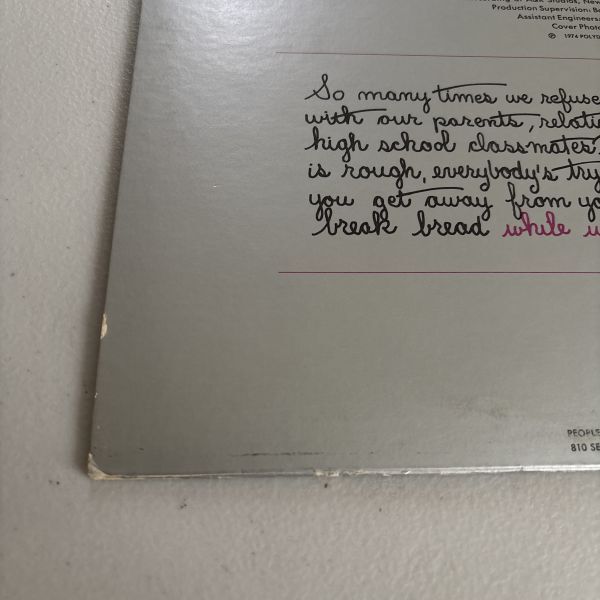 Production Supervision: B
Assistant Engineers:
Cover Phot
℗ 1974 POLYD
So many times we refuse
with our parents, relati
high school classmates.
is rough, everybody's try
you get away from yo
break bread while w
PEOPLE
810 SE